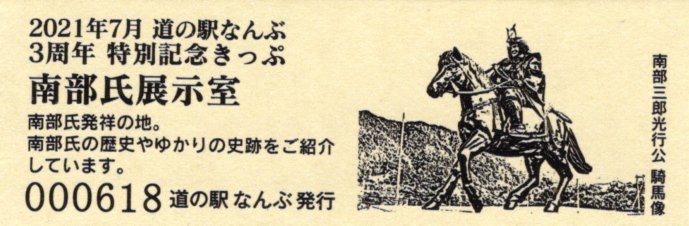 2021年7月 道の駅なんぶ
3周年 特別記念きっぷ
南部氏展示室
南部氏発祥の地。
南部氏の歴史やゆかりの史跡をご紹介
しています。
000618 道の駅 なんぶ 発行
南部三郎光行公 騎馬像